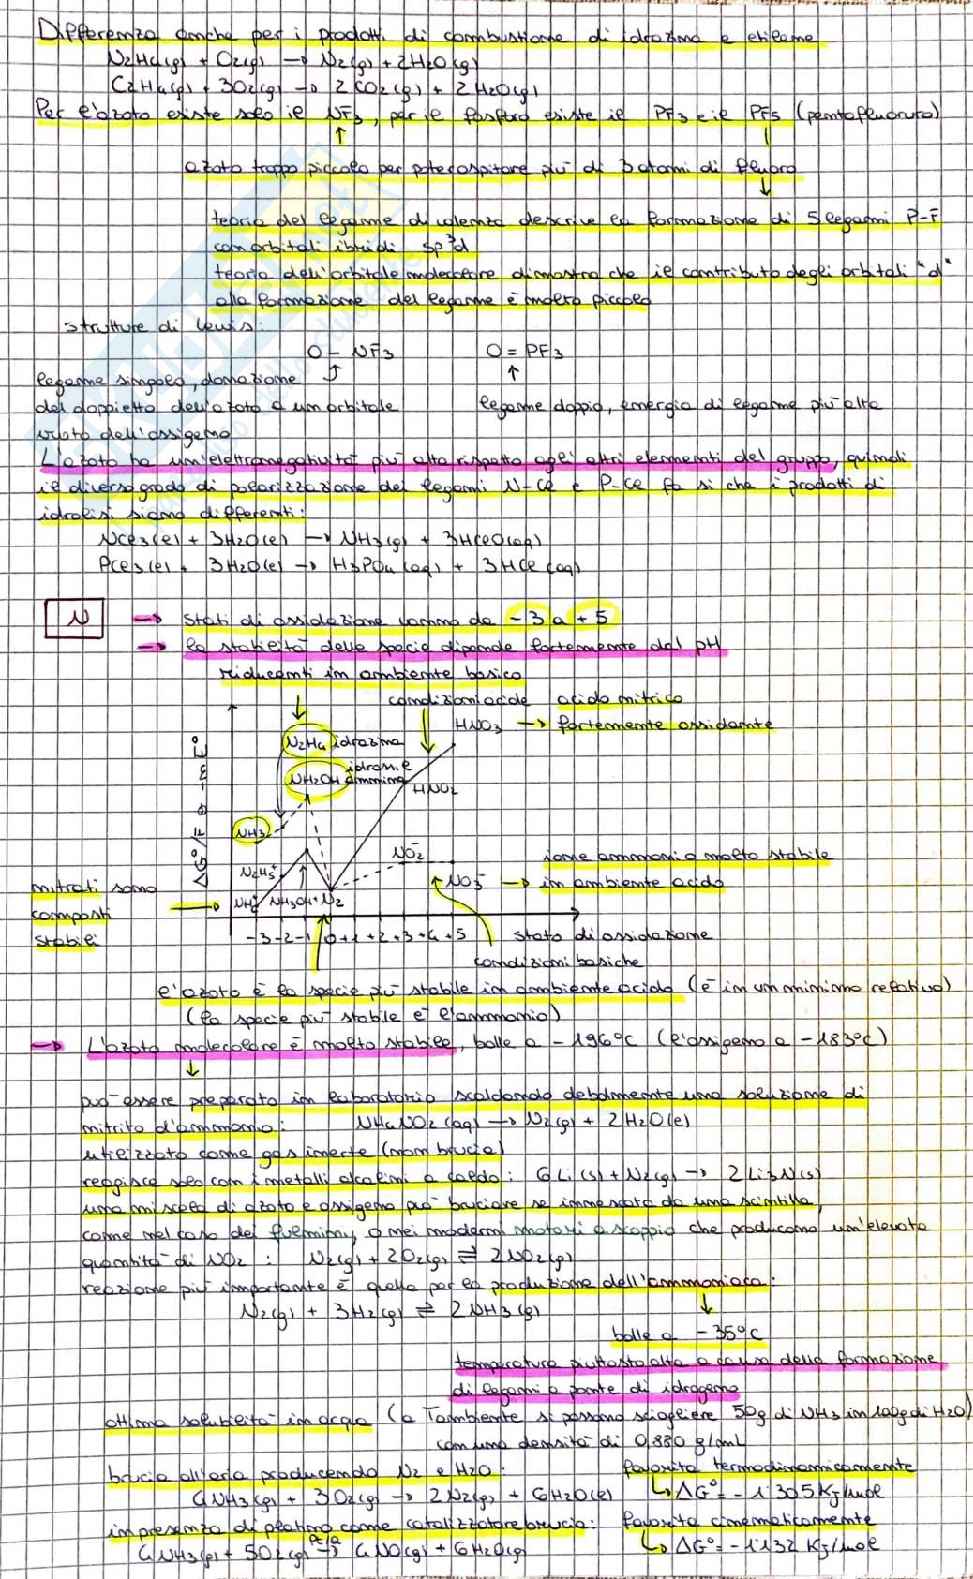 Differenza anche per i prodotti di combustione di idrazina e etilene
N2H4(g) + O2(g) → N2(g) + 2H2O(g)
C2H4(g) + 3O2(g) → 2CO2(g) + 2H2O(g)
Per l'azoto esiste solo il NF3, per il fosforo esiste il PF3 e il PF5 (pentafluoruro)
azoto troppo piccolo per poter ospitare più di 3 atomi di fluoro
teoria del legame di valenza descrive la formazione di 5 legami P-F
con orbitali ibridi sp3d
teoria dell'orbitale molecolare dimostra che il contributo degli orbitali "d"
alla formazione del legame è molto piccolo
strutture di Lewis:
O - NF3 O = PF3
legame singolo, donazione
del doppietto dell'azoto a un orbitale legame doppio, energia di legame più alta
vuoto dell'ossigeno
L'azoto ha un'elettronegatività più alta rispetto agli altri elementi del gruppo, quindi
il diverso grado di polarizzazione dei legami N-Cl e P-Cl fa si che i prodotti di
idrolisi siano differenti:
NCl3(l) + 3H2O(l) → NH3(g) + 3HClO(aq)
PCl3(l) + 3H2O(l) → H3PO4(aq) + 3HCl(aq)
N → stati di ossidazione vanno da -3 a +5
→ la stabilità delle specie dipende fortemente dal pH
riducenti in ambiente basico
condizioni acide acido nitrico
HNO3 → fortemente ossidante
N2H4 idrazina
NH2OH idrossilammina
HNO2
NH3
NO2-
ione ammonio molto stabile
N2H5+
NO3- → in ambiente acido
nitrati sono
composti
stabili
NH4+ NH3OH+ N2
-3 -2 -1 0 +1 +2 +3 +4 +5 stato di ossidazione
condizioni basiche
l'azoto è la specie più stabile in ambiente acido (è in un minimo relativo)
(la specie più stabile è l'ammonio)
→ L'azoto molecolare è molto stabile, bolle a -196°C (l'ossigeno a -183°C)
può essere preparato in laboratorio scaldando debolmente una soluzione di
nitrito d'ammonio: NH4NO2(aq) → N2(g) + 2H2O(l)
utilizzato come gas inerte (non brucia)
reagisce solo con i metalli alcalini a caldo: 6Li(s) + N2(g) → 2Li3N(s)
una miscela di azoto e ossigeno può bruciare se innescata da una scintilla,
come nel caso dei fulmini, o nei moderni motori a scoppio che producono un'elevata
quantità di NO2: N2(g) + 2O2(g) ⇌ 2NO2(g)
reazione più importante è quella per la produzione dell'ammoniaca:
N2(g) + 3H2(g) ⇌ 2NH3(g)
bolle a -35°C
temperatura piuttosto alta a causa della formazione
di legami a ponte di idrogeno
ottima solubilità in acqua (a Tambiente si possono sciogliere 50g di NH3 in 100g di H2O)
con una densità di 0,880 g/mL
brucia all'aria producendo N2 e H2O: favorita termodinamicamente
4NH3(g) + 3O2(g) → 2N2(g) + 6H2O(l) ↳ ΔG° = -1305 KJ/mole
in presenza di platino come catalizzatore brucia: favorita cineticamente
4NH3(g) + 5O2(g) → 4NO(g) + 6H2O(g) ↳ ΔG° = -1132 KJ/mole